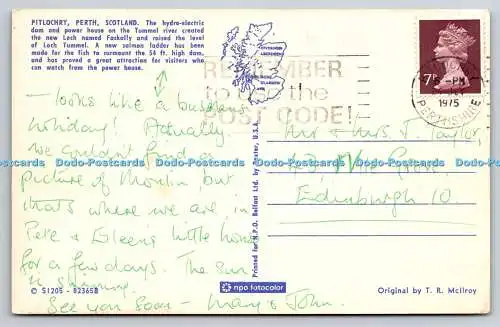 PITLOCHRY, PERTH, SCOTLAND. The hydro-electric
dam and power house on the Tummel river created
the new Loch named Faskally and raised the level
of Loch Tummel. A new salmon ladder has been
made for the fish to surmount the 54 ft. high dam,
and has proved a great attraction for visitors who
can watch from the power house.
— looks like a business
holiday! Actually
we couldn't find a
picture of Moulin but
that's where we are in
Pete & Eileen's little house
for a few days. The sun
is shining.
See you soon — Mary & John.
REMEMBER
to use the
POST CODE!
7P
-PM
1975
PERTHSHIRE
Mr & Mrs J. Taylor,
Edinburgh 10.
Dodo-Postcards Dodo-Postcards Dodo-Postcards Dodo-Postcards Dodo-Postcards
Printed for N.P.O. Belfast Ltd. by Dexter, U.S.A.
© 51205 - B2365B
npo fotocolor
Original by T. R. McIlroy